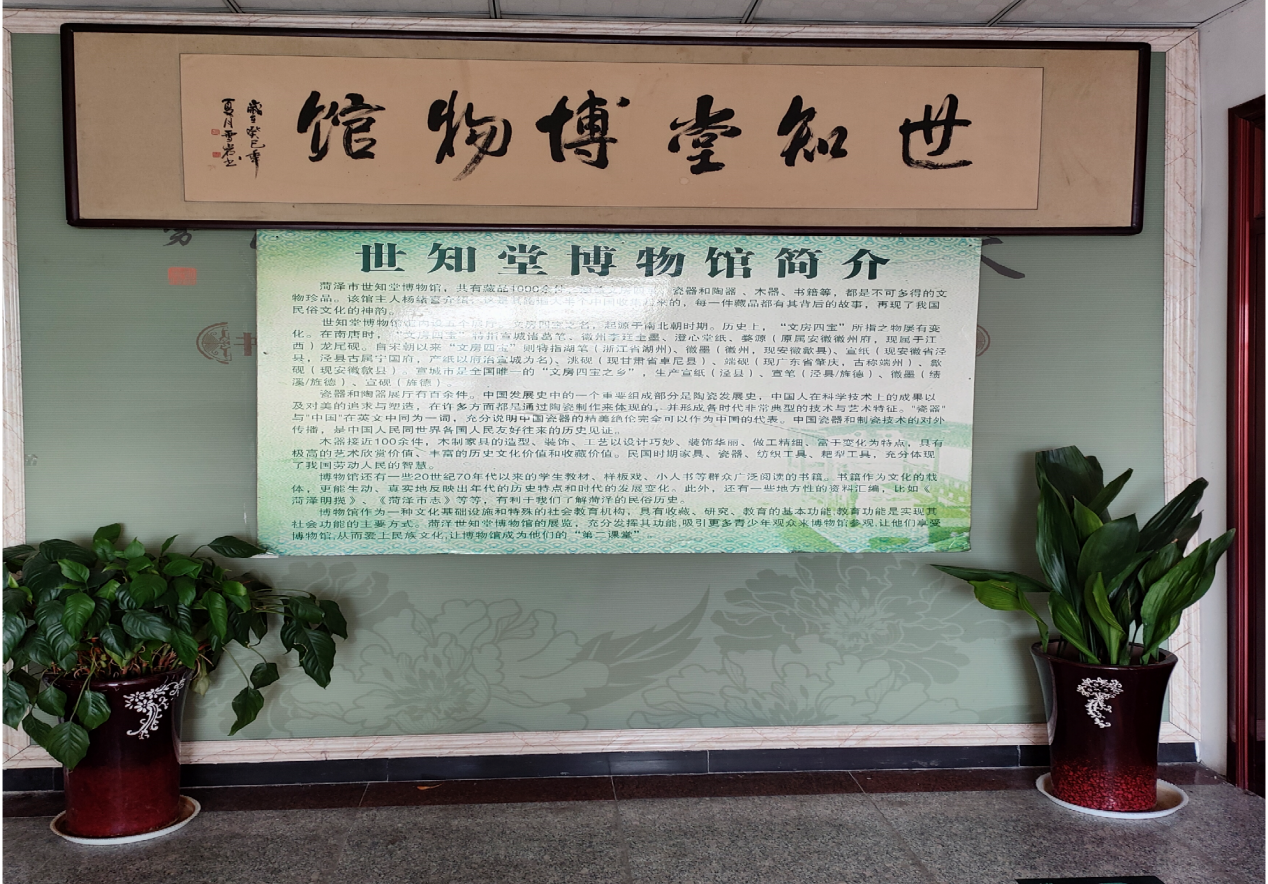 世知堂博物馆
歲在癸巳年
夏月雪岩书
世知堂博物馆简介
菏泽市世知堂博物馆，共有藏品4000余件，瓷器和陶器、木器、书籍等，都是不可多得的文
物珍品。该馆主人杨绪喜介绍，来的，每一件藏品都有其背后的故事，再现了我国
民俗文化的神韵。
世知堂博物馆文房四宝之名，起源于南北朝时期。历史上，“文房四宝”所指之物屡有变
化。在南唐时，“文房四宝”特指宣城诸葛笔、徽州李廷圭墨、澄心堂纸、婺源（原属安徽徽州府，现属于江
西）龙尾砚。自宋朝以来“文房四宝”则特指湖笔（浙江省湖州）、徽墨（徽州，现安徽歙县）、宣纸（现安徽省泾
县，泾县古属宁国府，产纸以府治宣城为名）、洮砚（现甘肃省卓尼县）、端砚（现广东省肇庆，古称端州）、歙
砚（现安徽歙县）。宣城市是全国唯一的“文房四宝之乡”，生产宣纸（泾县）、宣笔（泾县/旌德）、徽墨（绩
溪/旌德）、宣砚（旌德）。
瓷器和陶器展厅有百余件。中国发展史中的一个重要组成部分是陶瓷发展史，中国人在科学技术上的成果以
及对美的追求与塑造，在许多方面都是通过陶瓷制作来体现的，并形成各时代非常典型的技术与艺术特征。"瓷器"
与"中国"在英文中同为一词，充分说明中国瓷器的精美绝伦完全可以作为中国的代表。中国瓷器和制瓷技术的对外
传播，是中国人民同世界各国人民友好往来的历史见证。
木器接近100余件，木制家具的造型、装饰、工艺以设计巧妙、装饰华丽、做工精细、富于变化为特点，具有
极高的艺术欣赏价值、丰富的历史文化价值和收藏价值。民国时期家具、瓷器、纺织工具、耙犁工具，充分体现
了我国劳动人民的智慧。
博物馆还有一些20世纪70年代以来的学生教材、样板戏、小人书等群众广泛阅读的书籍。书籍作为文化的载
体，更能生动、直索地反映出年代的历史特点和时代的发展变化。此外，还有一些地方性的资料汇编，比如《
菏泽明揽》、《菏泽市志》等等，有利于我们了解菏泽的民俗历史。
博物馆作为一种文化基础设施和特殊的社会教育机构，具有收藏、研究、教育的基本功能,教育功能是实现其
社会功能的主要方式。菏泽世知堂博物馆的展览，充分发挥其功能,吸引更多青少年观众来博物馆参观,让他们享受
博物馆,从而爱上民族文化,让博物馆成为他们的“第二课堂”。